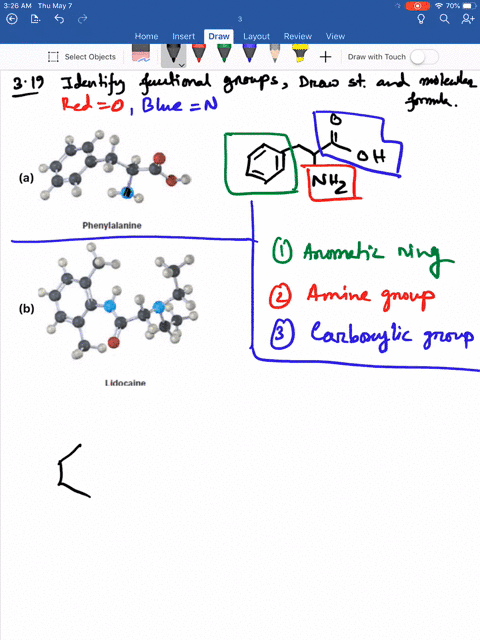 3:26 AM Thu May 7
70%
3
Home Insert Draw Layout Review View
Select Objects
Draw with Touch
3.19 Identify functional groups, Draw st. and molecular formula.
Red = O, Blue = N
(a)
O
OH
NH2
Phenylalanine
① Aromatic ring
(b)
② Amine group
③ Carboxylic group
Lidocaine